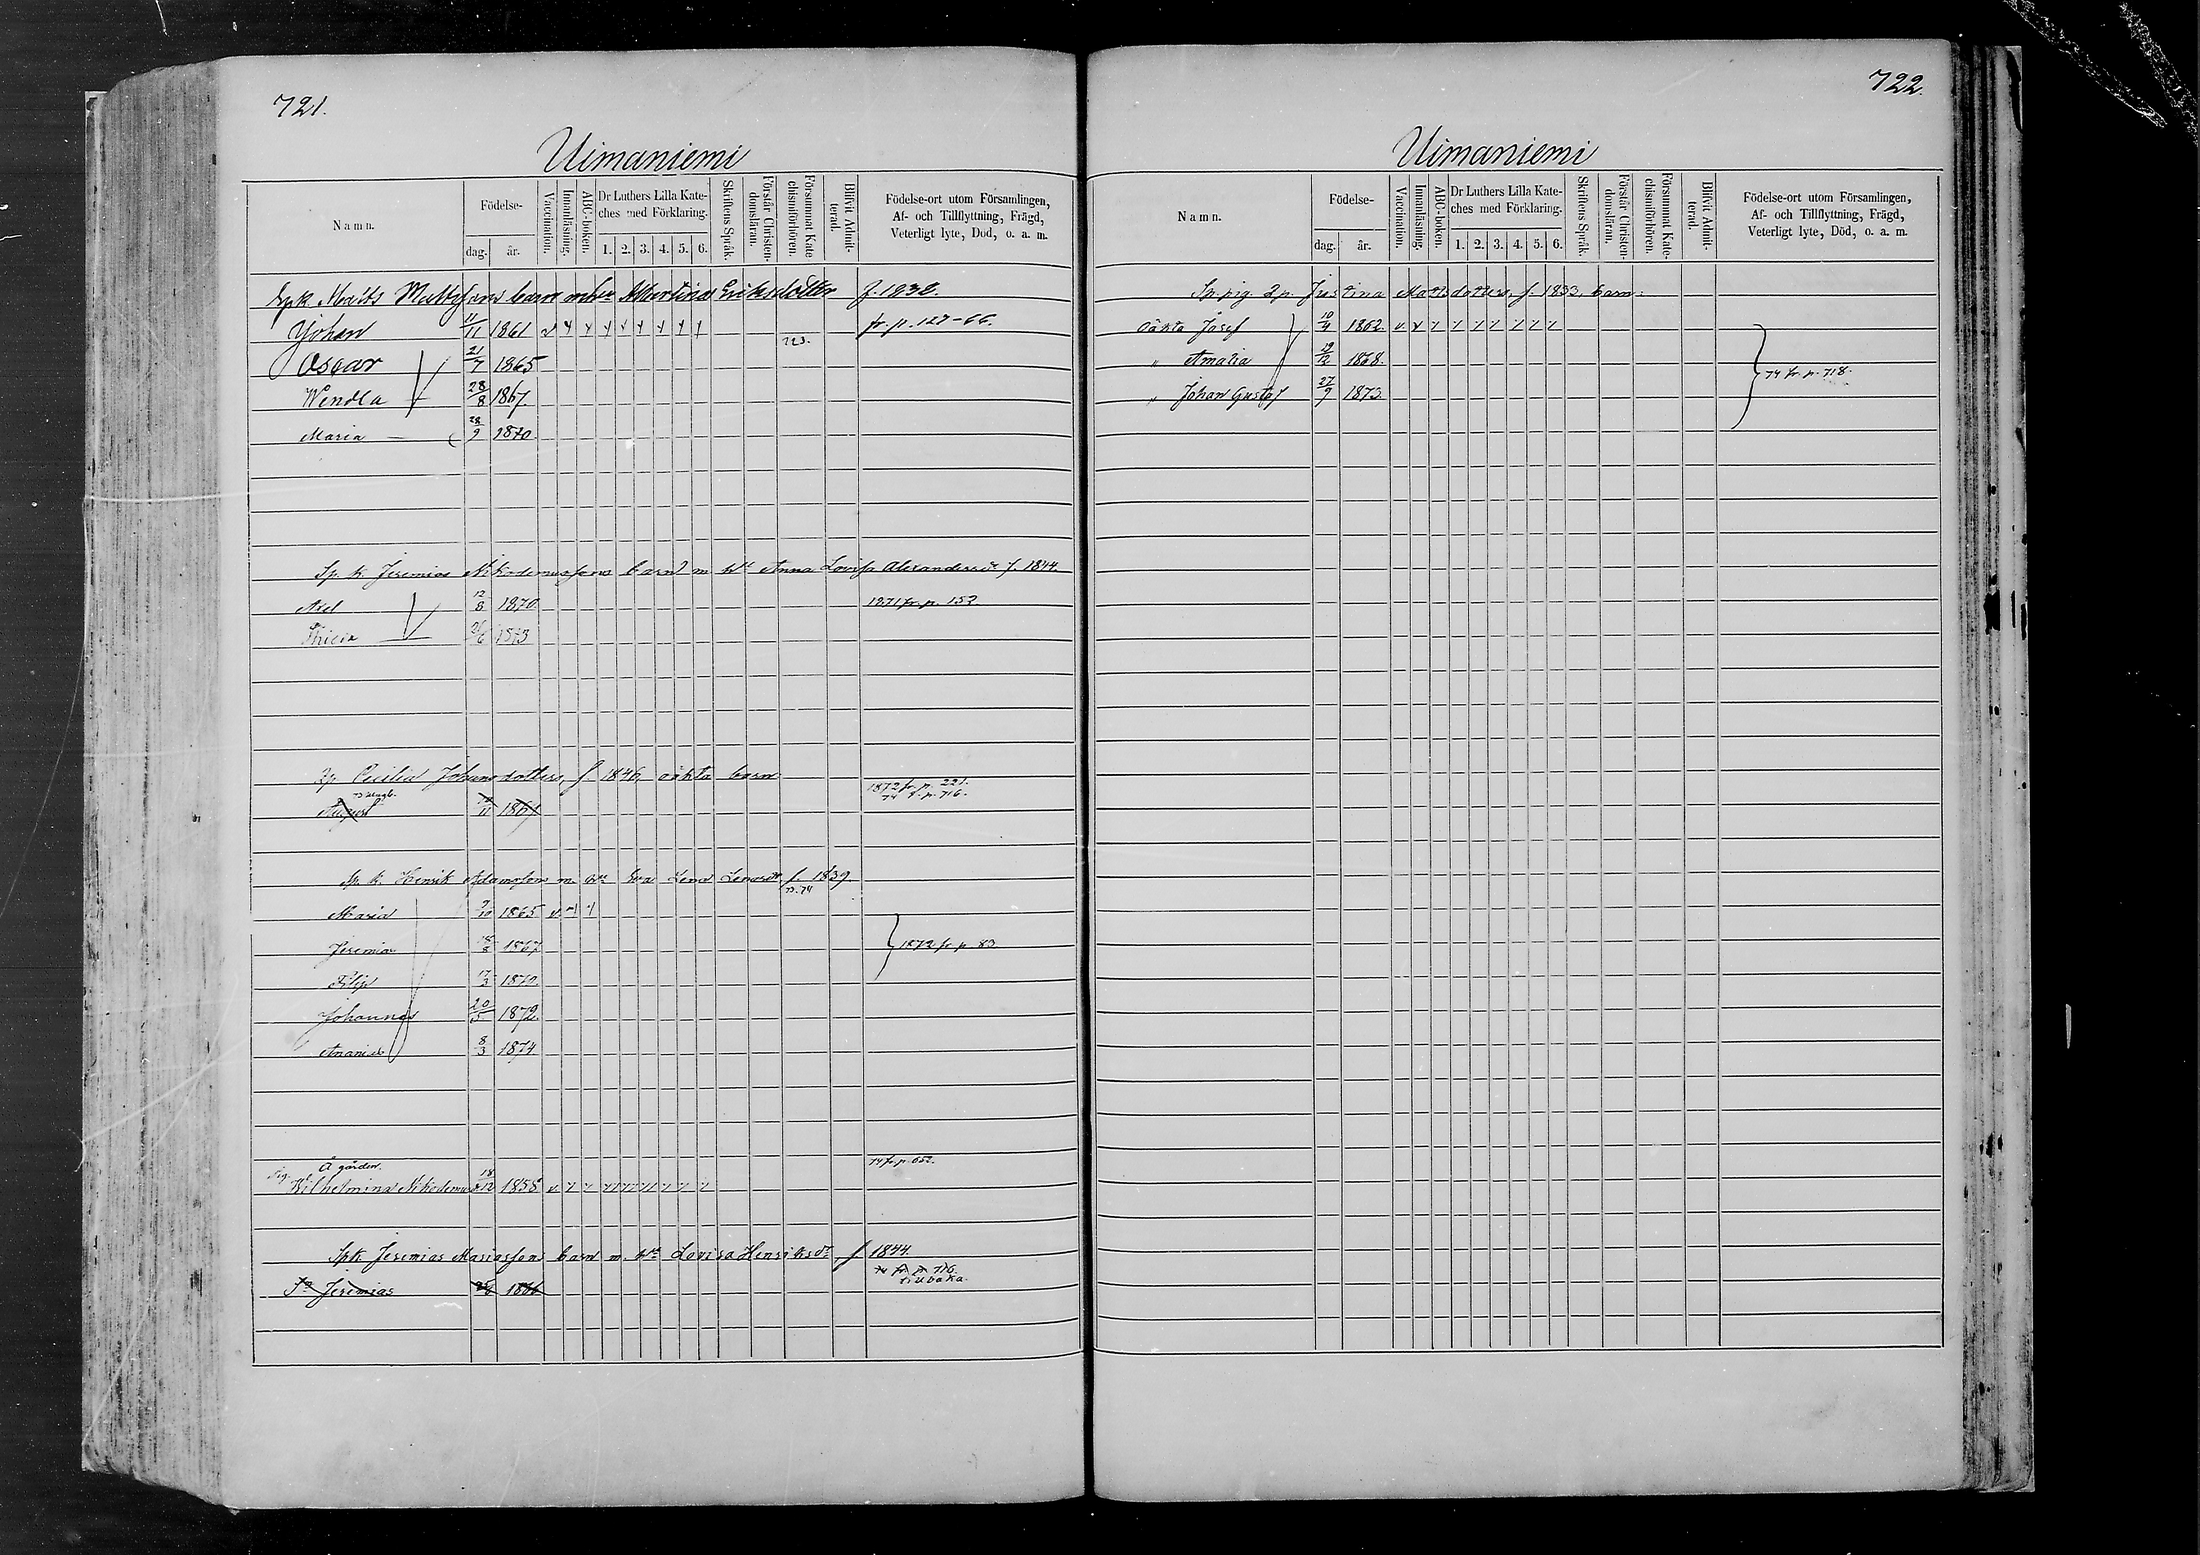 721.
Uimaniemi
Namn.
Födelse-
dag. år.
Vaccination.
Innanläsning.
ABC-boken.
Dr Luthers Lilla Kate-
ches med Förklaring.
1. 2. 3. 4. 5. 6.
Skriftens Språk.
Förstår Christen-
domsläran.
Försummat Kate-
chismiförhören.
Blifvit Admit-
terad.
Födelse-ort utom Församlingen,
Af- och Tillflyttning, Frägd,
Veterligt lyte, Död, o. a. m.
Spk. Matts Mattssons barn med Eriksdotter f. 1838.
Johan 11/11 1861 fr. p. 127-66.
723.
Oscar 21/7 1865
Wendla 28/8 1867.
Maria 28/9 1870
Sp. k. Jeremias Nikodemussons barn m. h. Anna Lovisa Alexandersdr f. 1844.
Axel 12/8 1870 1871 fr. p. 152
1873
Cecilia Johansdotters, f. 1846, oäkta barn
1872 fr. p. 221.
74 t. p. 716.
August /11 1867
Sp. k. Henrik Adamssons m. h. Eva Lena f. 1839.
73.74
Maria 9/10 1865
Jeremias 18/8 1867 1872 fr. p. 83
Filip 17/3 1870
Johannes 20/5 1872.
Ananias 8/3 1874
Å gården. 74 fr. p. 652.
Pig. Wilhelmina Nikodemusdr 18/12 1855
Spk. Jeremias Mariassons barn m. h. Lovisa Henriksdr, f. 1844.
74 fr. p. 716.
tillbaka.
Jeremias 1866
722.
Uimaniemi
Namn.
Födelse-
dag. år.
Vaccination.
Innanläsning.
ABC-boken.
Dr Luthers Lilla Kate-
ches med Förklaring.
1. 2. 3. 4. 5. 6.
Skriftens Språk.
Förstår Christen-
domsläran.
Försummat Kate-
chismiförhören.
Blifvit Admit-
terad.
Födelse-ort utom Församlingen,
Af- och Tillflyttning, Frägd,
Veterligt lyte, Död, o. a. m.
Sp. pig. Justina Mattsdotters, f. 1833, barn:
oäkta Josef 10/4 1862.
" Amalia 19/12 1868. 74 fr. p. 718.
" Johan Gustaf 27/9 1873.